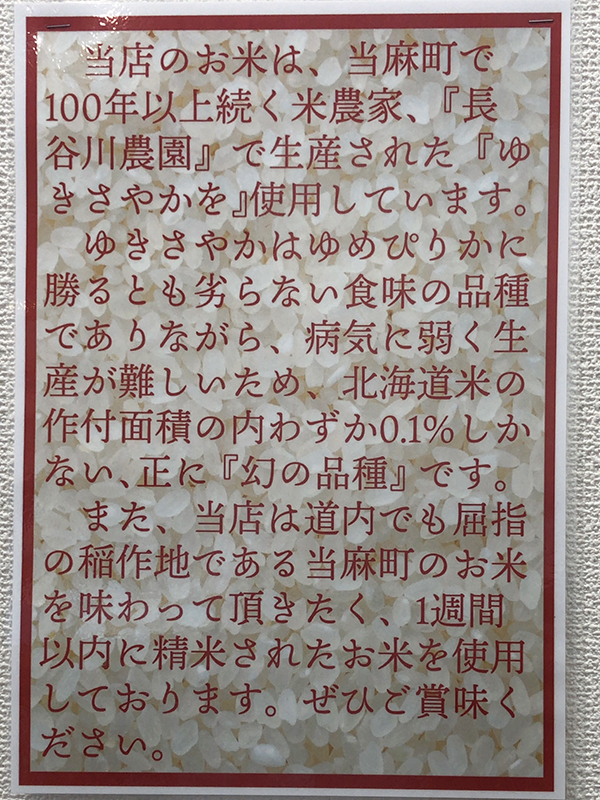 当店のお米は、当麻町で
100年以上続く米農家、『長
谷川農園』で生産された『ゆ
きさやかを』使用しています。
　ゆきさやかはゆめぴりかに
勝るとも劣らない食味の品種
でありながら、病気に弱く生
産が難しいため、北海道米の
作付面積の内わずか0.1%しか
ない、正に『幻の品種』です。
　また、当店は道内でも屈指
の稲作地である当麻町のお米
を味わって頂きたく、1週間
以内に精米されたお米を使用
しております。ぜひご賞味く
ださい。